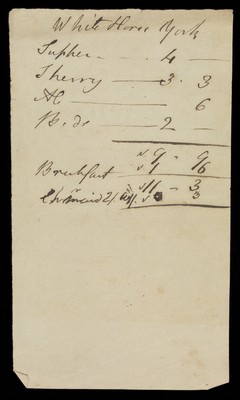 White Horse York
Supper — 4 —
Sherry — 3 . 3
Al — 6
Beds — 2 —
9 - 9
Breakfast — 1 6
11 - 3
3